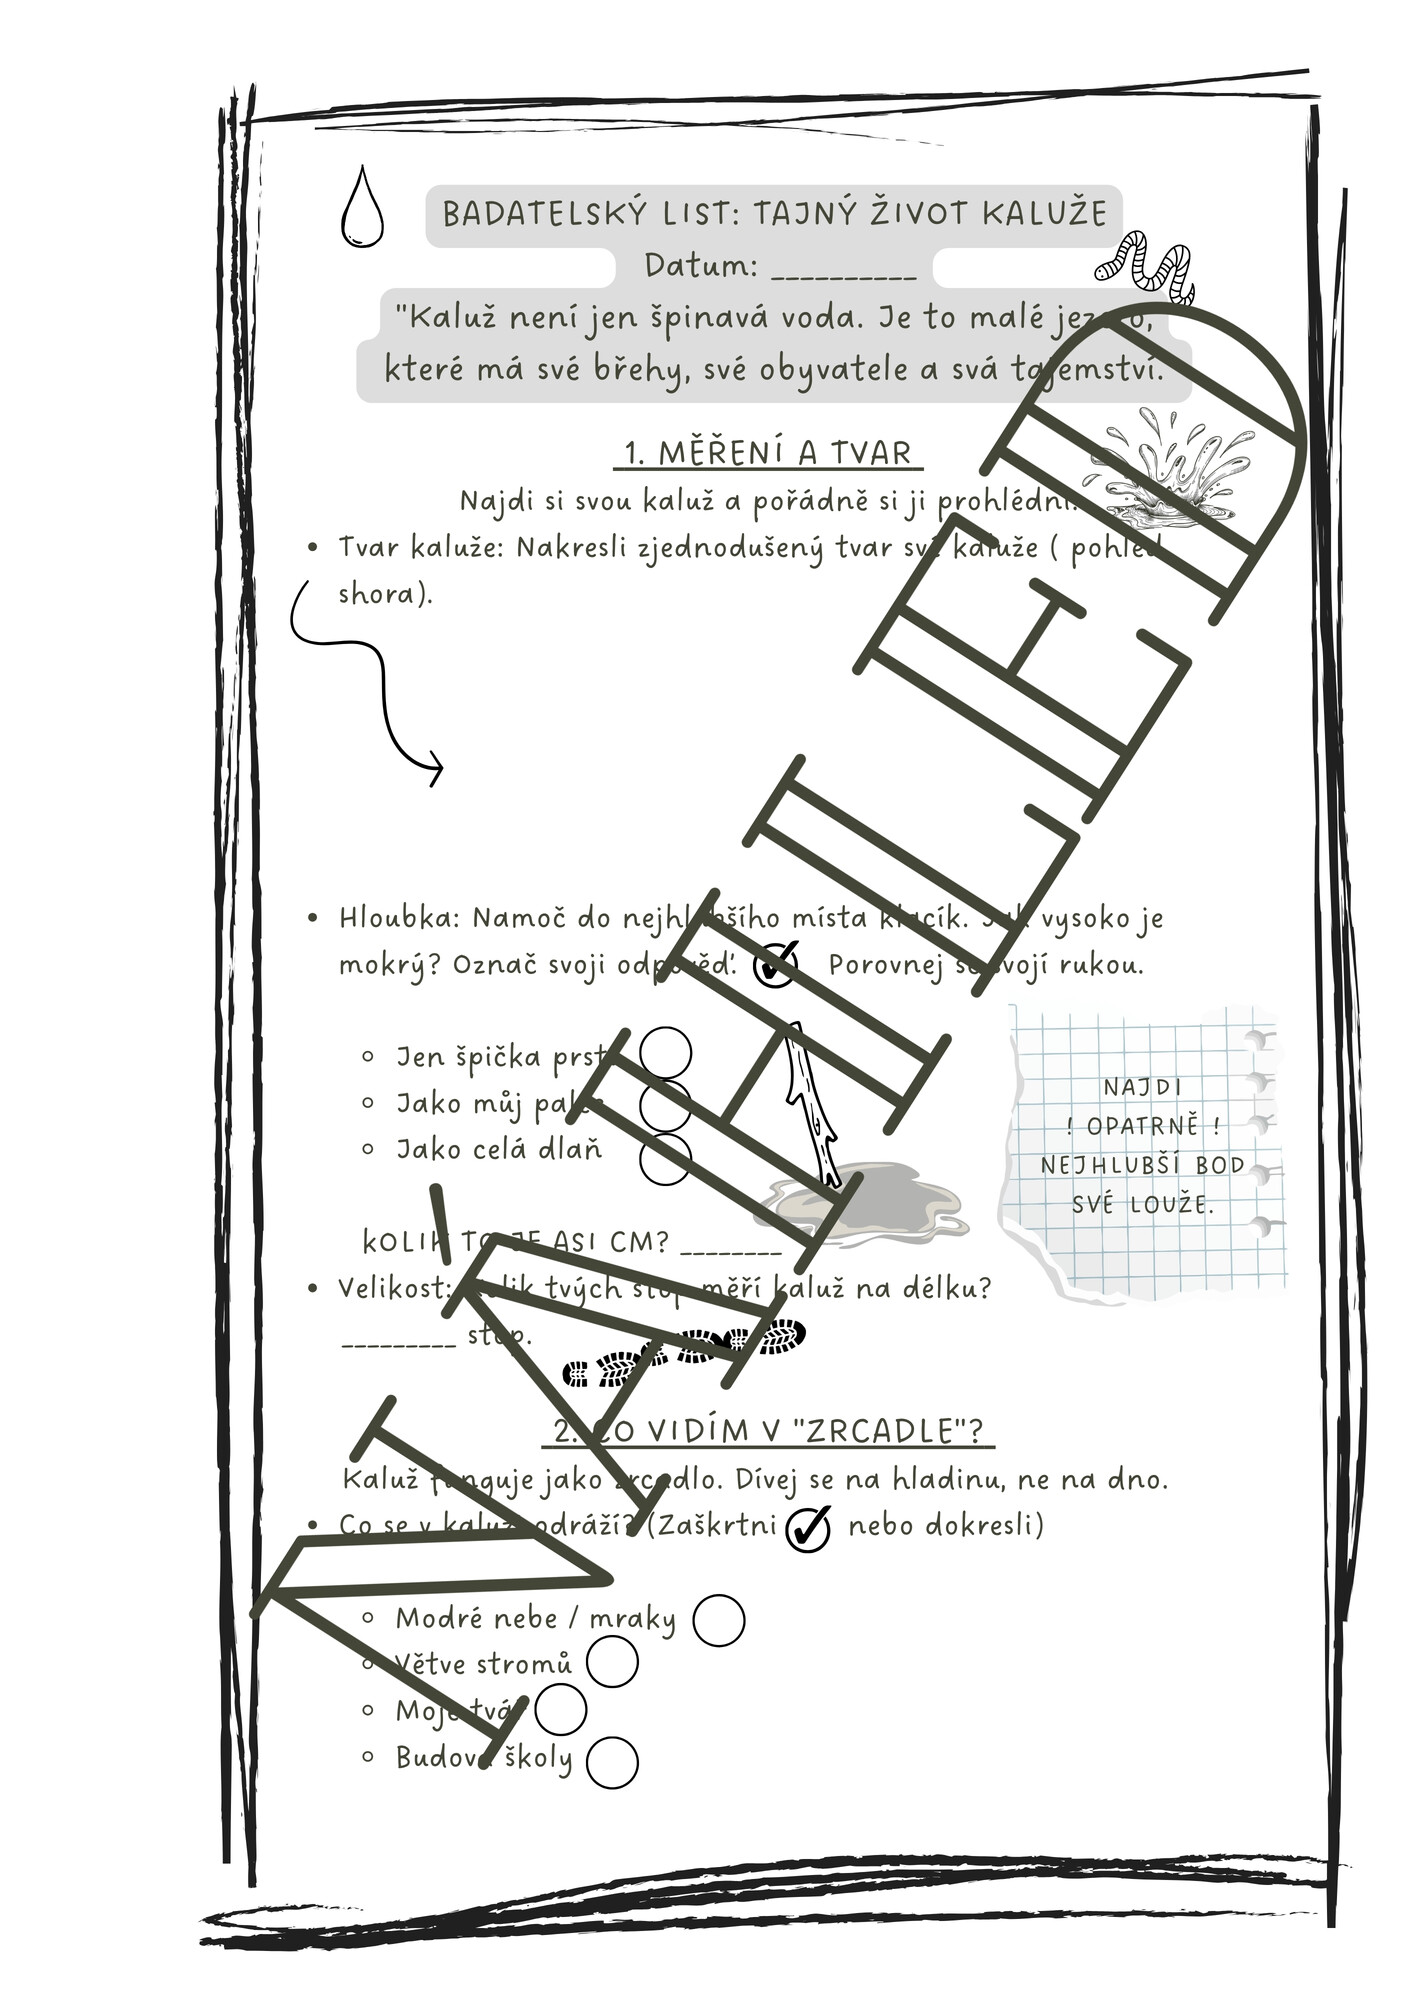 BADATELSKÝ LIST: TAJNÝ ŽIVOT KALUŽE
Datum: __________
"Kaluž není jen špinavá voda. Je to malé jezero,
které má své břehy, své obyvatele a svá tajemství.
1. MĚŘENÍ A TVAR
Najdi si svou kaluž a pořádně si ji prohlédni.
• Tvar kaluže: Nakresli zjednodušený tvar své kaluže ( pohled
shora).
• Hloubka: Namoč do nejhlubšího místa klacík. Jak vysoko je
mokrý? Označ svoji odpověď. Porovnej se svojí rukou.
Jen špička prstu
Jako můj palec
Jako celá dlaň
NAJDI
! OPATRNĚ !
NEJHLUBŠÍ BOD
SVÉ LOUŽE.
kOLIK TO JE ASI CM? ________
• Velikost: Kolik tvých stop měří kaluž na délku?
_________ stop.
2. CO VIDÍM V "ZRCADLE"?
Kaluž funguje jako zrcadlo. Dívej se na hladinu, ne na dno.
• Co se v kaluži odráží? (Zaškrtni nebo dokresli)
Modré nebe / mraky
Větve stromů
Moje tvář
Budova školy
NÁHLED